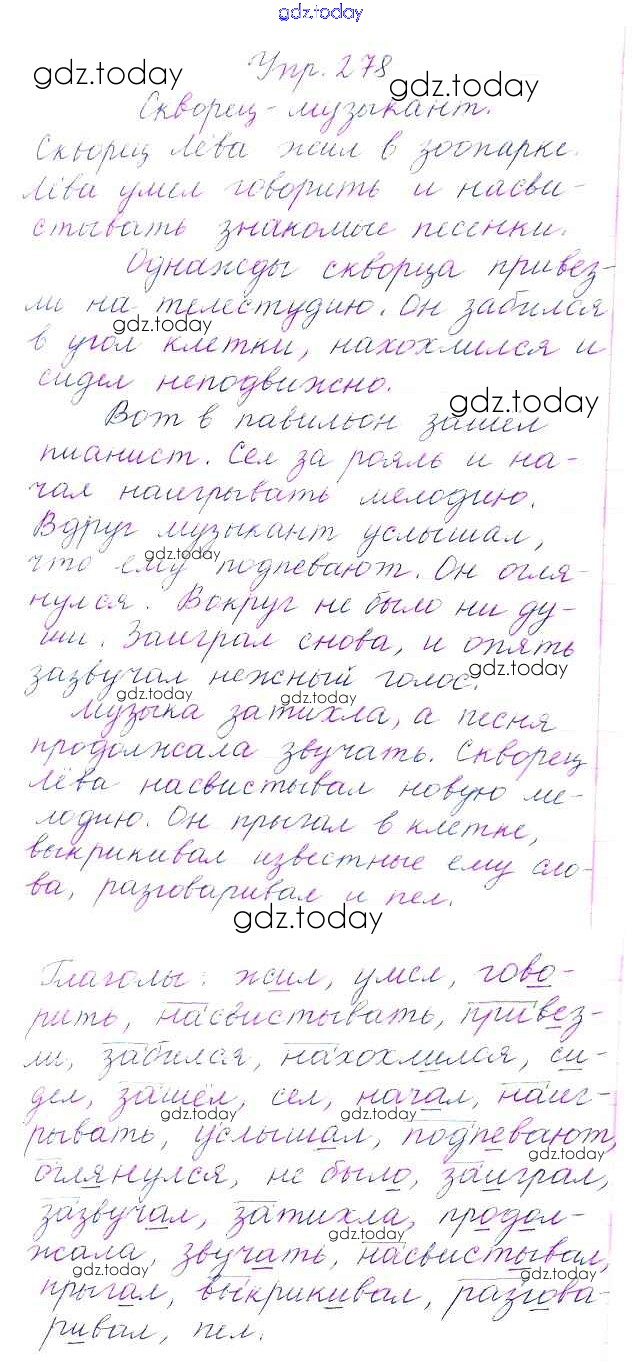 gdz.today
Упр. 278
gdz.today
gdz.today
Скворец-музыкант.
Скворец Лёва жил в зоопарке.
Лёва умел говорить и насви-
стывать знакомые песенки.
Однажды скворца привез-
ли на телестудию. Он забился
gdz.today
в угол клетки, нахохлился и
сидел неподвижно.
gdz.today
Вот в павильон зашёл
пианист. Сел за рояль и на-
чал наигрывать мелодию.
Вдруг музыкант услышал,
gdz.today
что ему подпевают. Он огля-
нулся. Вокруг не было ни ду-
ши. Заиграл снова, и опять
gdz.today
зазвучал нежный голос.
gdz.today
gdz.today
Музыка затихла, а песня
продолжала звучать. Скворец
Лёва насвистывал новую ме-
лодию. Он прыгал в клетке,
выкрикивал известные ему сло-
ва, разговаривал и пел.
gdz.today
Глаголы: жил, умел, гово-
рить, насвистывать, привез-
ли, забился, нахохлился, си-
дел, зашёл, сел, начал, наиг-
gdz.today
gdz.today
рывать, услышал, подпевают,
gdz.today
оглянулся, не было, заиграл,
зазвучал, затихла, продол-
gdz.today
жала, звучать, насвистывал,
gdz.today
gdz.today
прыгал, выкрикивал, разгова-
ривал, пел.